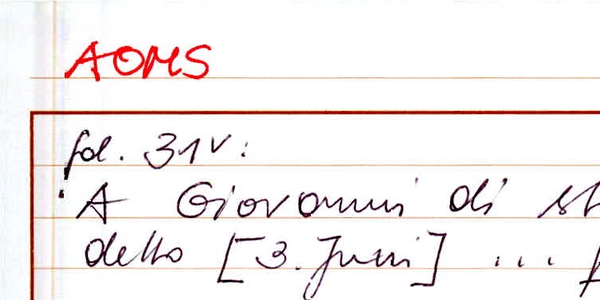 AOMS
fol. 31v:
A Giovanni di
detto [3. Juni] ...